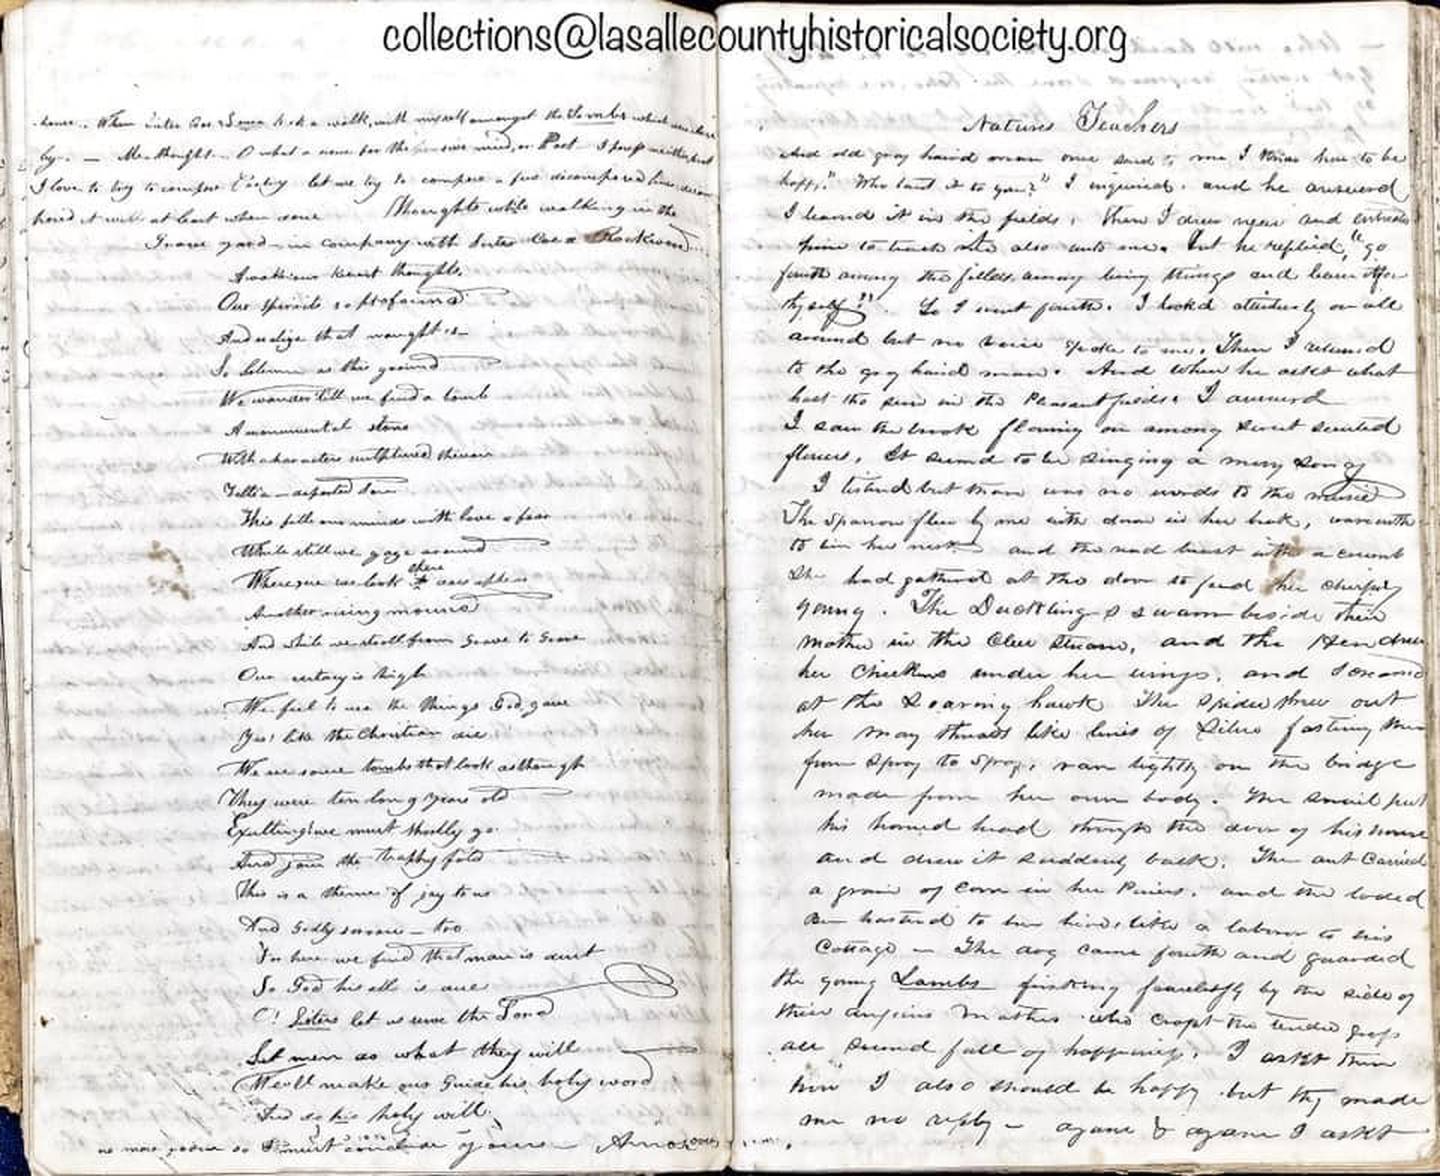 collections@lasallecountyhistoricalsociety.org
home. When Sister Coe & took a walk, with myself amongst the Tombs which
by. — Me thought. O what a scene for the mind, or Poet
I love to try to compose Poetry let me try to compose a few discomposed lines
it will at least when done Thoughts while walking in the
Grave yard — in company with Sister Coe & Rockwood
Awakeing thoughts,
Our spirits so profound
And naught is
So Solemn as this ground
We wander till we find a tomb
A monumental stone
With characters therein
Tells a departed
This fills our minds with love & fear
While still we gaze around
Where ere we look there
Another rising mound
And while we stroll from Grave to Grave
Our extacy is high
We feel to use the things God gave
Yes! like the Christian die
We see some tombs that look as though
They were ten long years old
Exulting! we must shortly go
And join the fold
This is a theme of joy to us
And Godly sorrow — too
For here we find that man is dust
So God his all is due
O! Sisters let us serve the Lord
Let men do what they will
We'll make our Guide his holy word
And do his holy will.
no more so I must conclude yours
Natures Teachers
And old gray haird man once said to me I know how to be
happy." Who taut it to you?" I inquired. and he answerd
I learnd it in the fields. Then I drew near and
him to teach also unto me. But he replied, "go
fourth among the fields among living things and learn it for
thyself". So I went fourth. I lookd attentively on all
around but no voice spoke to me. Then I returned
to the gray haird man. And when he askt what
hast tho seen in the Pleasant fields. I answerd
I saw the brook flowing on among sweet scented
flowers. It seemd to be singing a merry song
I listend but there was no words to the music
The Sparrow flew by me with down in her beak,
to line her nest. and the red breast with a crumb
She had gatherd at the door to feed her chirping
young. The Ducklings swam beside their
mother in the Clear stream, and the Hen drew
her Chickens under her wings, and screamd
at the Soaring hawk The Spider threw out
her many threads like lines of Silver fasting them
from spray to spray, ran lightly on the bridge
made from her own body. The snail put
his horned head through the door of his house
and drew it suddenly back. The ant Carried
a grain of Corn in her Pincers, and the loded
Bee hastend to her hive, like a laborer to his
Cottage — The dog came fourth and guarded
the young Lambs frisking fearlessly by the side of
their mother who cropt the tender grass
all seemd full of happiness. I askt them
how I also should be happy but they made
me no reply — agane & agane I askt